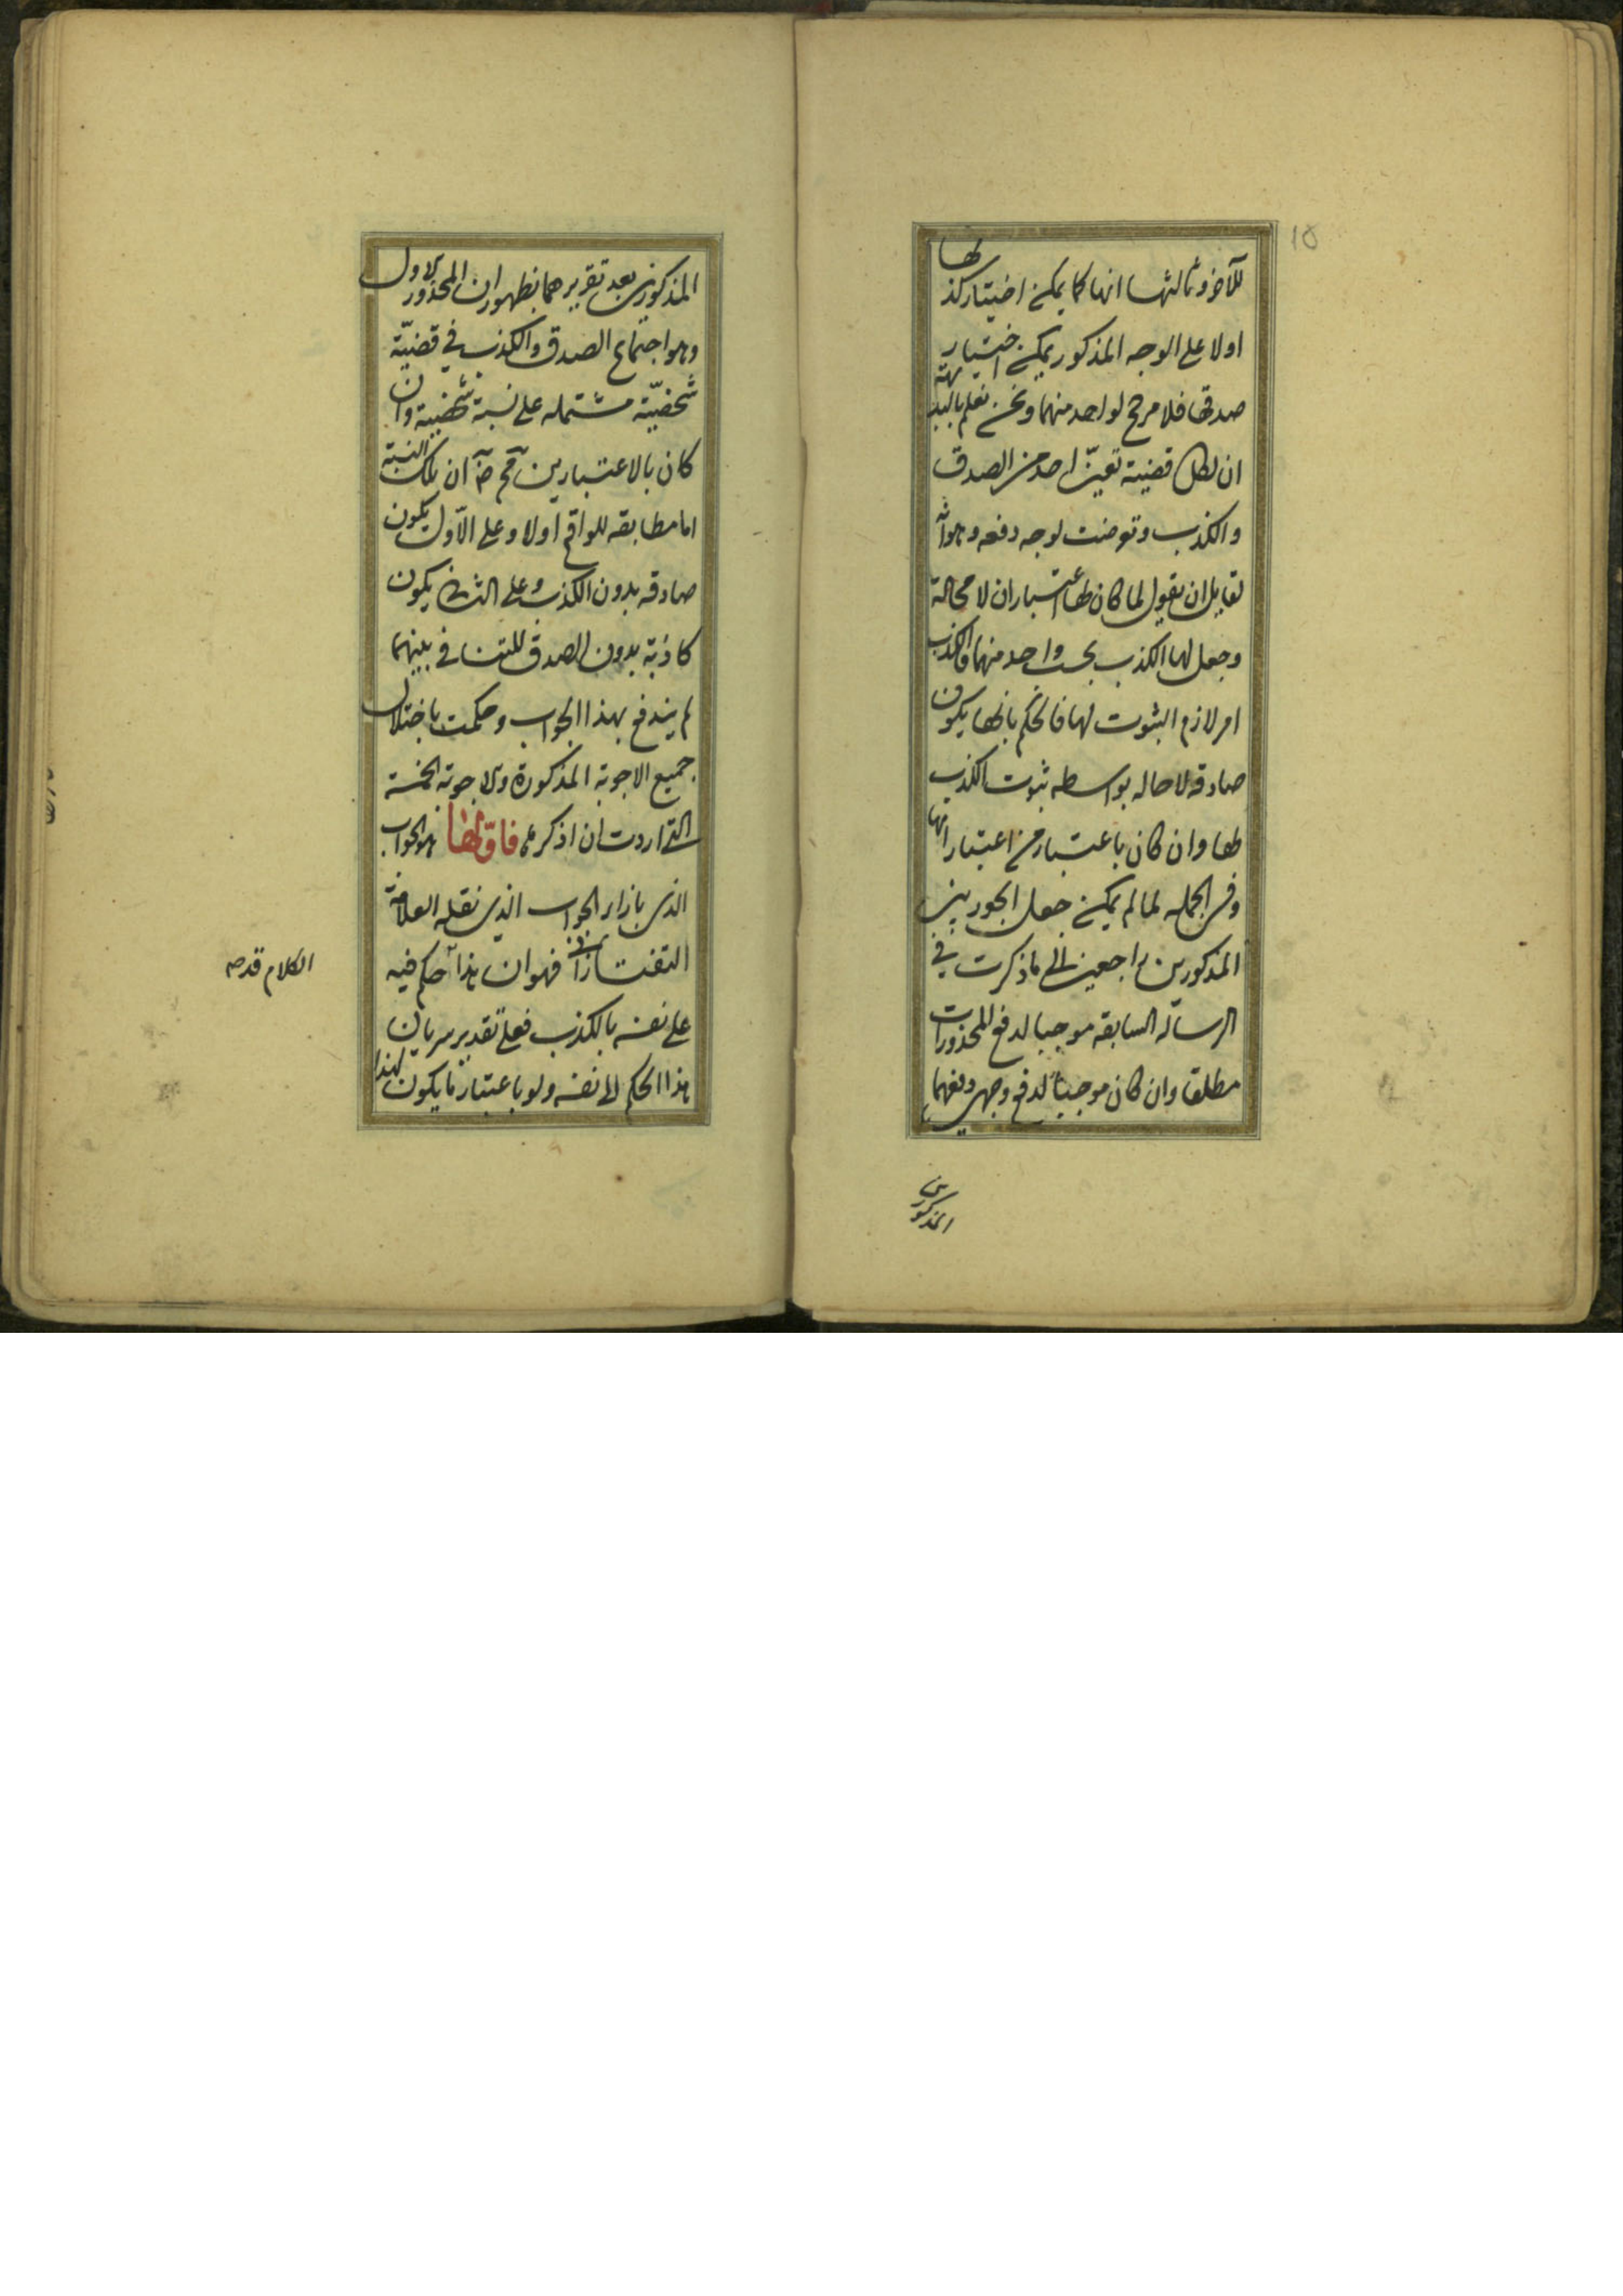 للآخر وثالثها انها كما يمكن اختيار كذبها
اولا على الوجه المذكور يمكن اختيار
صدقها فلا مرجح لواحد منهما ونحن نعلم بالبديهة
ان لكل قضية تعيّن احد من الصدق
والكذب وتعرضت لوجه دفعه وهو انه
لقايل ان يقول لما كان لها اعتباران لا محالة
وجعل لها الكذب بحسب واحد منهما فالكذب
امر لازم الثبوت لها فالحكم بانها يكون
صادقه لا محاله بواسطه ثبوت الكذب
لها وان كان باعتبار من اعتباراتها
وفي الجمله لما لم يمكن جعل الجوابين
المذكورين راجعين الى ما ذكرت في
الرسالة السابقه موجبا لدفع المحذورات
مطلقا وان كان موجبا لدفع وجهى دفعهما
المذكورين
المذكورين بعد تقريرهما بظهور ان المحذور الاول
وهو اجتماع الصدق والكذب في قضيّة
شخصيّة مشتمله على نسبة شخصية وان
كان بالاعتبارين مح ضرورة ان تلك النسبة
اما مطابقه للواقع اولا وعلى الاول يكون
صادقه بدون الكذب وعلى الثاني يكون
كاذبة بدون الصدق للتنافي بينهما
لم يندفع بهذا الجواب وحكمت باختلال
جميع الاجوبة المذكورة والاجوبة الخمسة
التي اردت ان اذكرها فاوّلها هو الجواب
الذي بازاء الجواب الذي نقله العلامة
التفتازاني فهو ان هذا حكم فيه
على نفسه بالكذب فعلى تقدير سريان
هذا الحكم الى نفسه ولو باعتبار ما يكون لهذا
الكلام